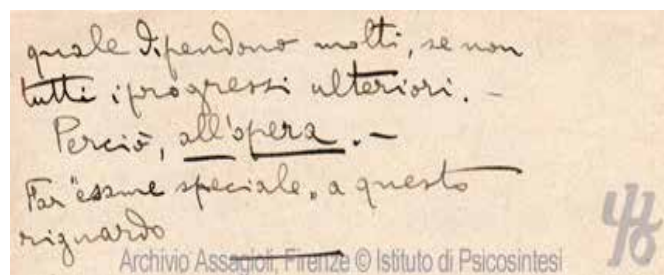 quale dipendono molti, se non
tutti i progressi ulteriori. –
Perciò, all'opera. –
Far "esame speciale" a questo
riguardo
Archivio Assagioli, Firenze © Istituto di Psicosintesi